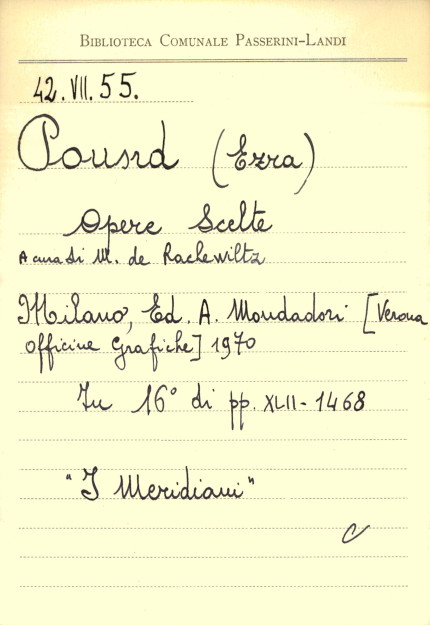 BIBLIOTECA COMUNALE PASSERINI-LANDI
42.VII.55.
Pound (Ezra)
Opere Scelte
A cura di M. de Rachewiltz
Milano, Ed. A. Mondadori [Verona
Officine Grafiche] 1970
In 16° di pp. XLII-1468
"I Meridiani"
C